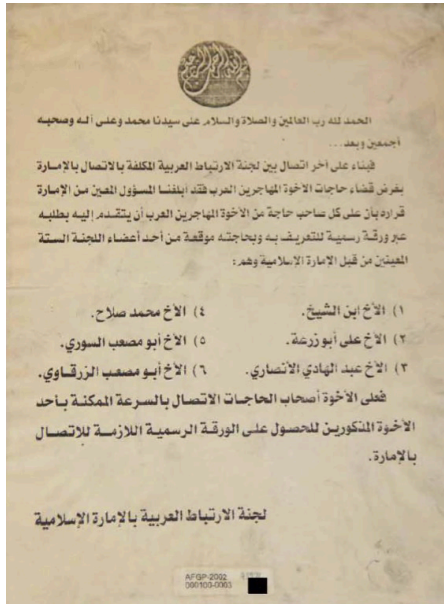 بسم الله الرحمن الرحيم
الحمد لله رب العالمين والصلاة والسلام على سيدنا محمد وعلى آله وصحبه
أجمعين وبعد...
فبناء على آخر اتصال بين لجنة الارتباط العربية المكلفة بالاتصال بالإمارة
بغرض قضاء حاجات الاخوة المهاجرين العرب فقد أبلغنا المسؤول المعين من الإمارة
قراره بأن على كل صاحب حاجة من الأخوة المهاجرين العرب أن يتقدم إليه بطلبه
عبر ورقة رسمية للتعريف به وبحاجته موقعة من أحد أعضاء اللجنة الستة
المعينين من قبل الإمارة الإسلامية وهم:
١) الأخ ابن الشيخ. ٤) الأخ محمد صلاح.
٢) الأخ على أبو زرعة. ٥) الأخ أبو مصعب السوري.
٣) الأخ عبد الهادي الأنصاري. ٦) الأخ أبو مصعب الزرقاوي.
فعلى الأخوة أصحاب الحاجات الاتصال بالسرعة الممكنة بأحد
الأخوة المذكورين للحصول على الورقة الرسمية اللازمة للإتصال
بالإمارة.
لجنة الارتباط العربية بالإمارة الإسلامية
AFGP-2002
000100-0003